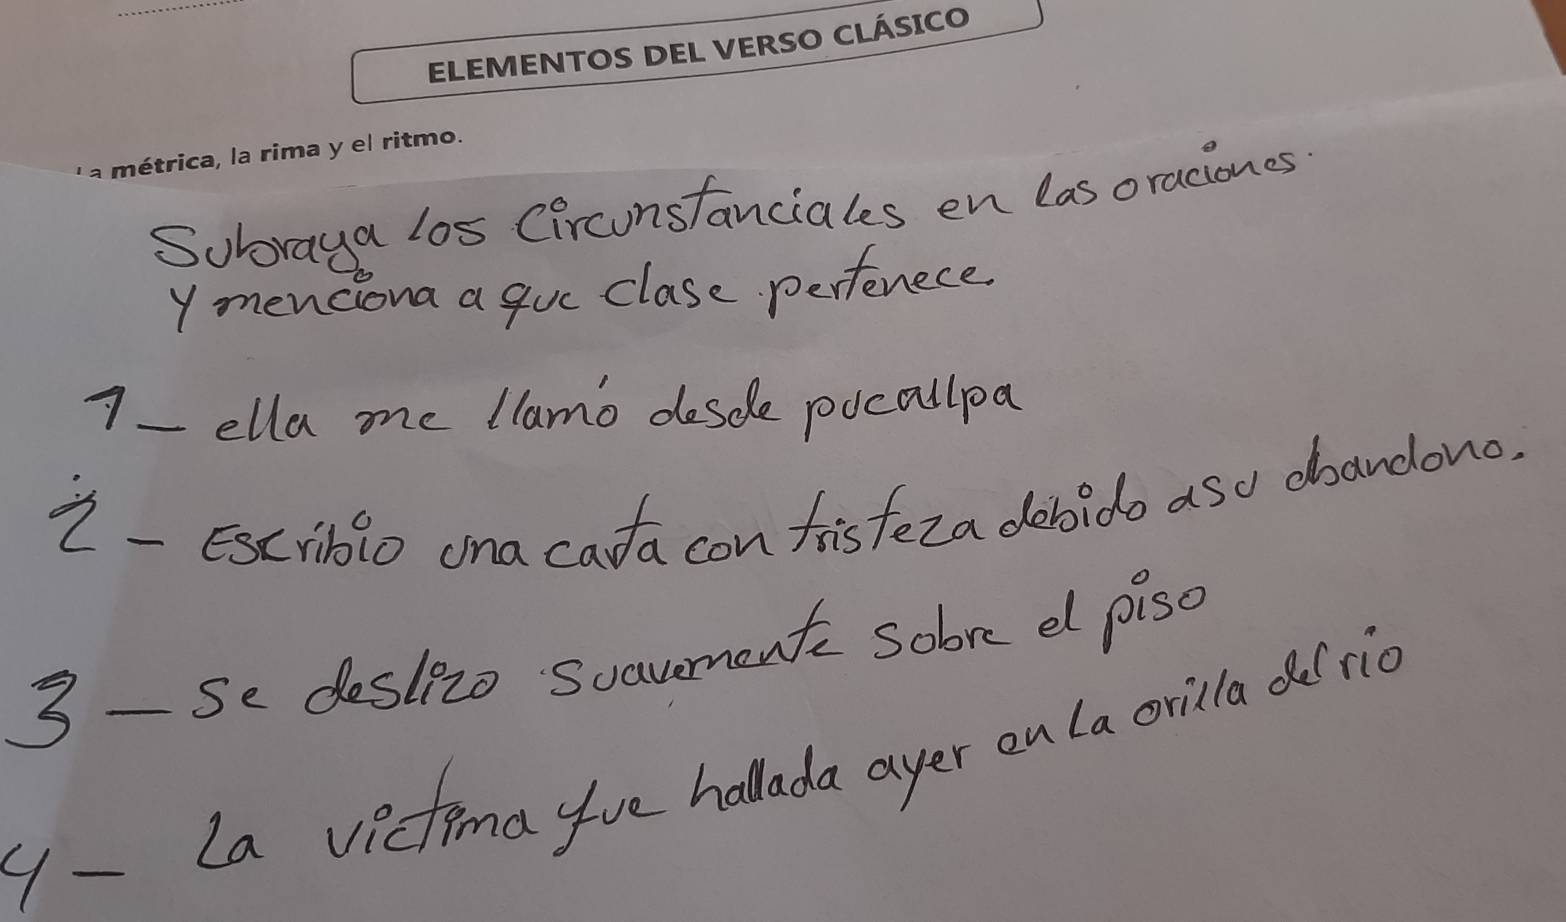 ELEMENTOS DEL VERSO CLÁSICO
La métrica, la rima y el ritmo.
Subraya los circunstanciales en las oraciones.
y menciona a que clase pertenece.
1- ella me llamó desde pucallpa
2- Escribio una carta con tristeza debido a su abandono.
3- Se deslizo suavemente sobre el piso
4- La victima fue hallada ayer en la orilla del rio